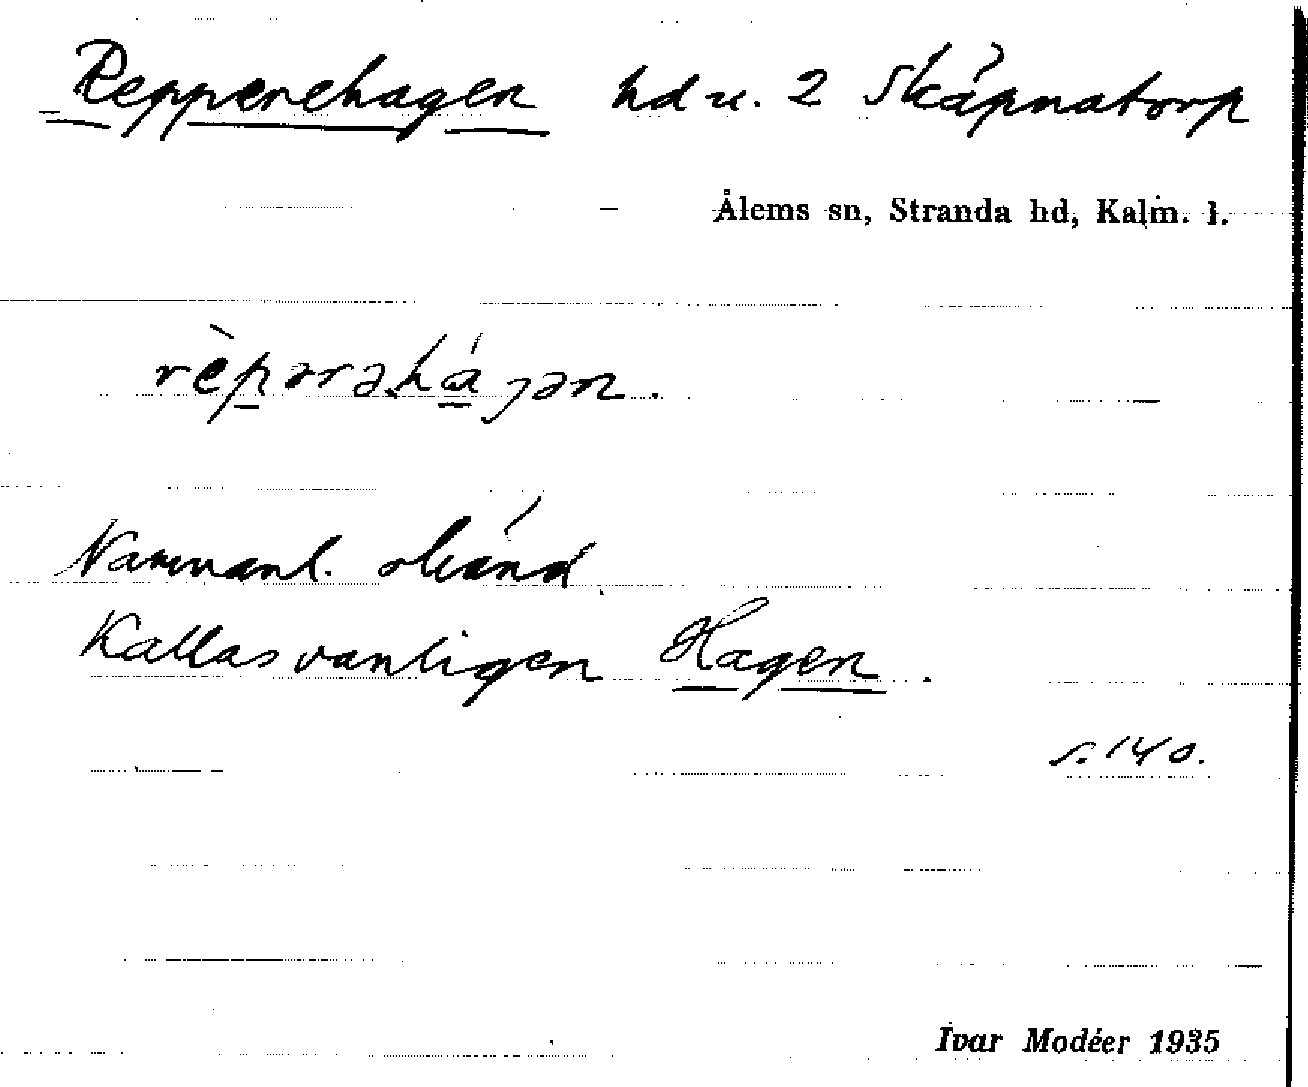 Repperehagen hd u. 2 Skäpnatorp
Ålems sn, Stranda hd, Kalm. l.
rèpərəhá̱gən.
Namnanl. okänd
Kallas vanligen Hagen.
s. 140.
Ivar Modéer 1935